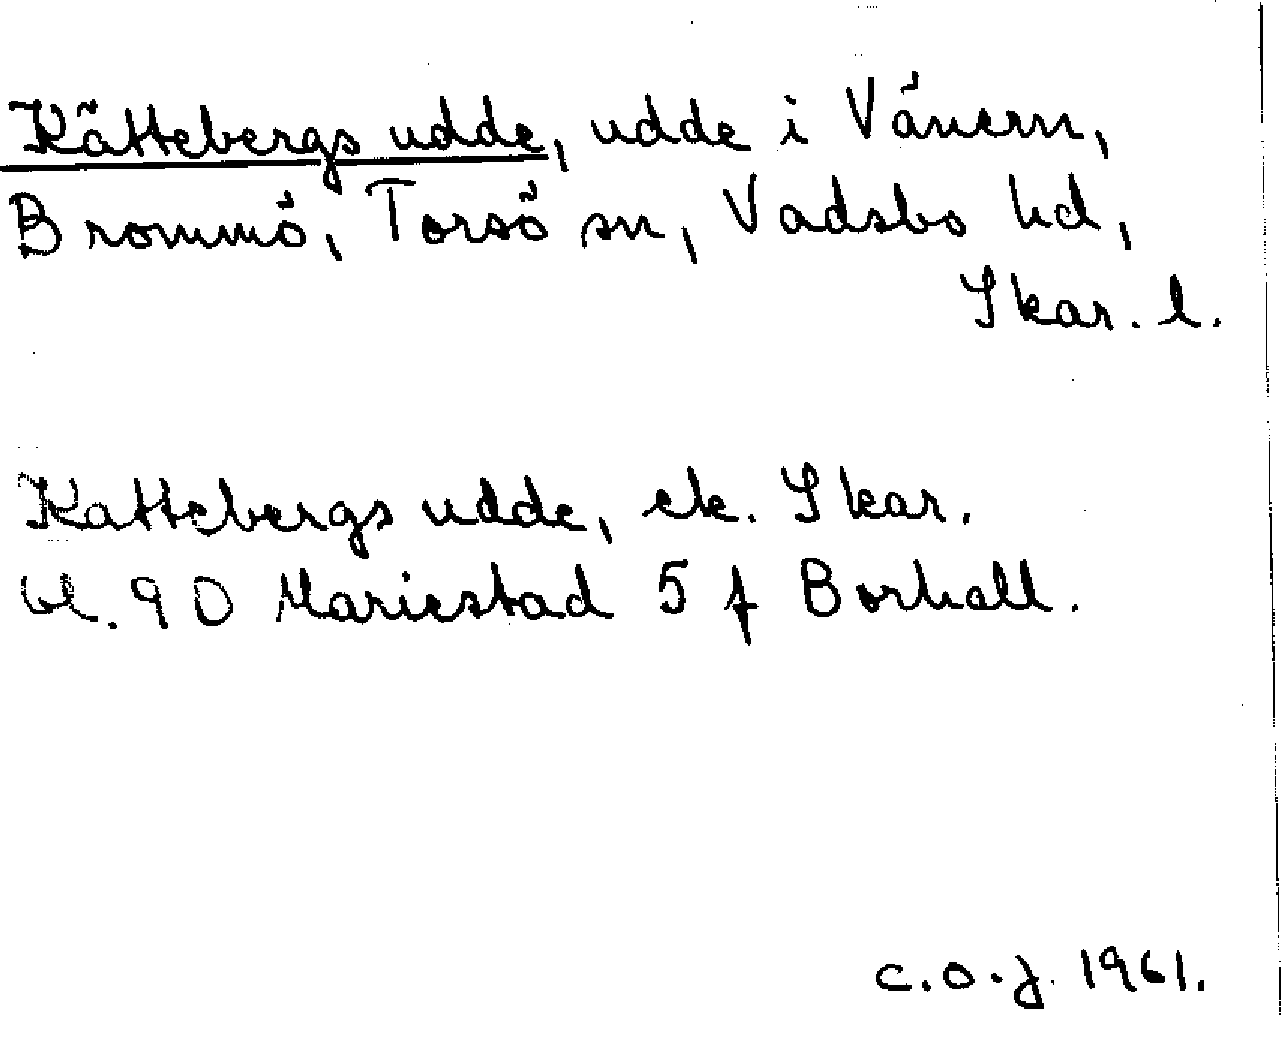 Kättebergs udde, udde i Vänern,
Brommö, Torsö sn, Vadsbo hd,
Skar. l.
Kattebergs udde, ek. Skar.
bl. 9 D Mariestad 5 f Borhall.
C.O.J. 1961.